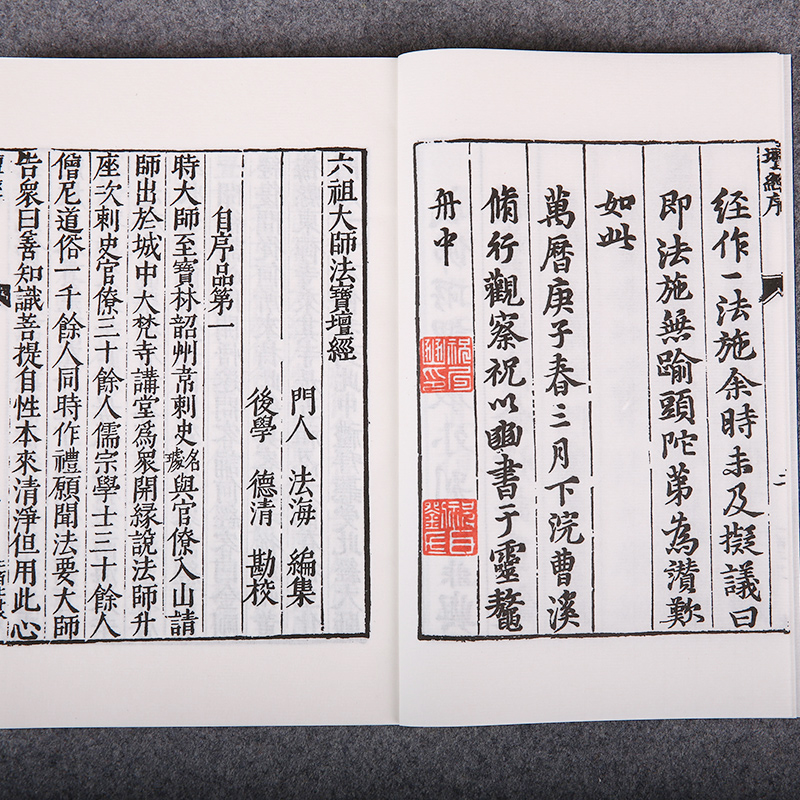 壇經序
經作一法施余時未及擬議曰
即法施無踰頭陀苐為讃歎
如此
萬曆庚子春三月下浣曹溪
脩行觀察祝以豳書于靈鼇
舟中
六祖大師法寶壇經
門人 法海 編集
後學 德清 勘校
自序品第一
時大師至寶林韶州韋刺史名璩與官僚入山請
師出於城中大梵寺講堂爲眾開緣說法師升
座次刺史官僚三十餘人儒宗學士三十餘人
僧尼道俗一千餘人同時作禮願聞法要大師
告眾曰善知識菩提自性本來清淨但用此心